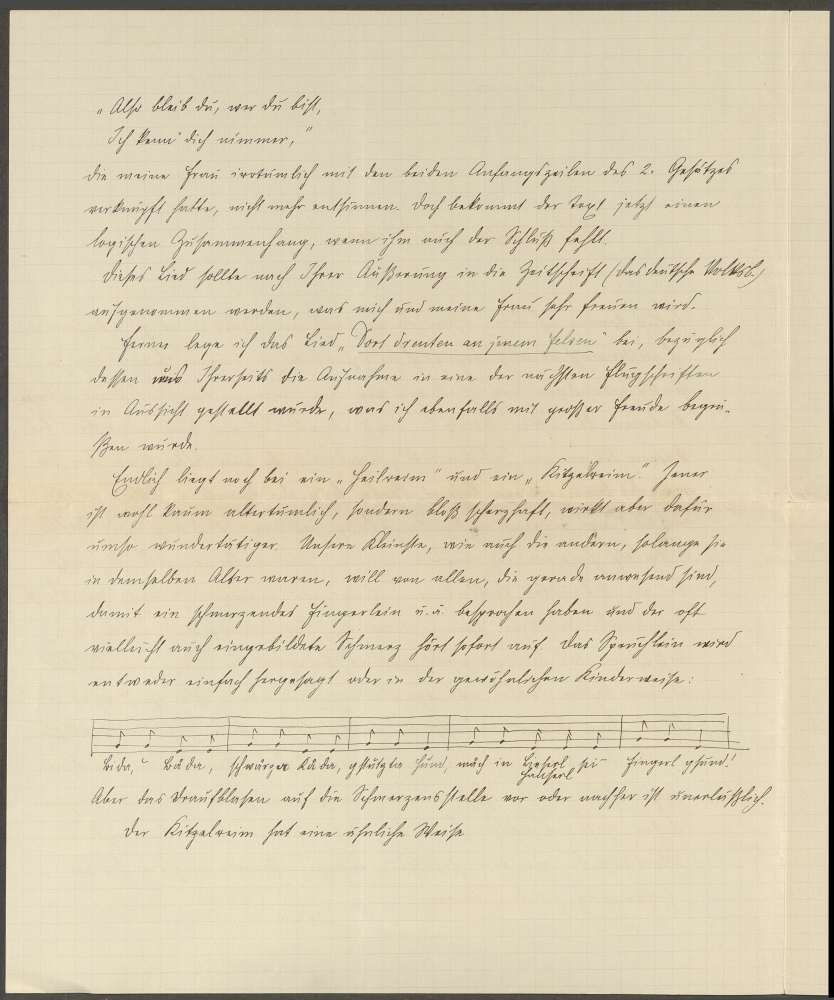 „Also bleib du, wer du bist,
Ich kenn' dich nimmer,"
die meine Frau irrtümlich mit den beiden Anfangszeilen des 2. Gesätzes
verknüpft hatte, nicht mehr entsinnen. Doch bekommt der Text jetzt einen
logischen Zusammenhang, wenn ihm auch der Schluß fehlt.
Dieses Lied sollte nach Ihrer Äußerung in die Zeitschrift (das deutsche Volksl.)
aufgenommen werden, was mich und meine Frau sehr freuen wird.
Ferner lege ich das Lied „Dort drenten an jenem Felsen" bei, bezüglich
dessen Ihrerseits die Aufnahme in eine der nächsten Flugschriften
in Aussicht gestellt wurde, was ich ebenfalls mit großer Freude begrü-
ßen würde.
Endlich liegt noch bei ein „Heilreim" und ein „Kitzelreim". Jener
ist wohl kaum altertümlich, sondern bloß scherzhaft, wirkt aber dafür
umso wundertätiger. Unsere Kleinste, wie auch die andern, solange sie
in demselben Alter waren, will von allen, die gerade anwesend sind,
damit ein schmerzendes Fingerlein u. ä. besprochen haben und der oft
vielleicht auch eingebildete Schmerz hört sofort auf. Das Sprüchlein wird
entweder einfach hergesagt oder in der gewöhnlichen Kinderweise:
schwårzer Kåda, gstutzta Hund, måch in Lieserl sei Fingerl gsund!
Hanserl
Aber das Draufblasen auf die Schmerzensstelle vor oder nachher ist unerläßlich.
Der Kitzelreim hat eine ähnliche Weise